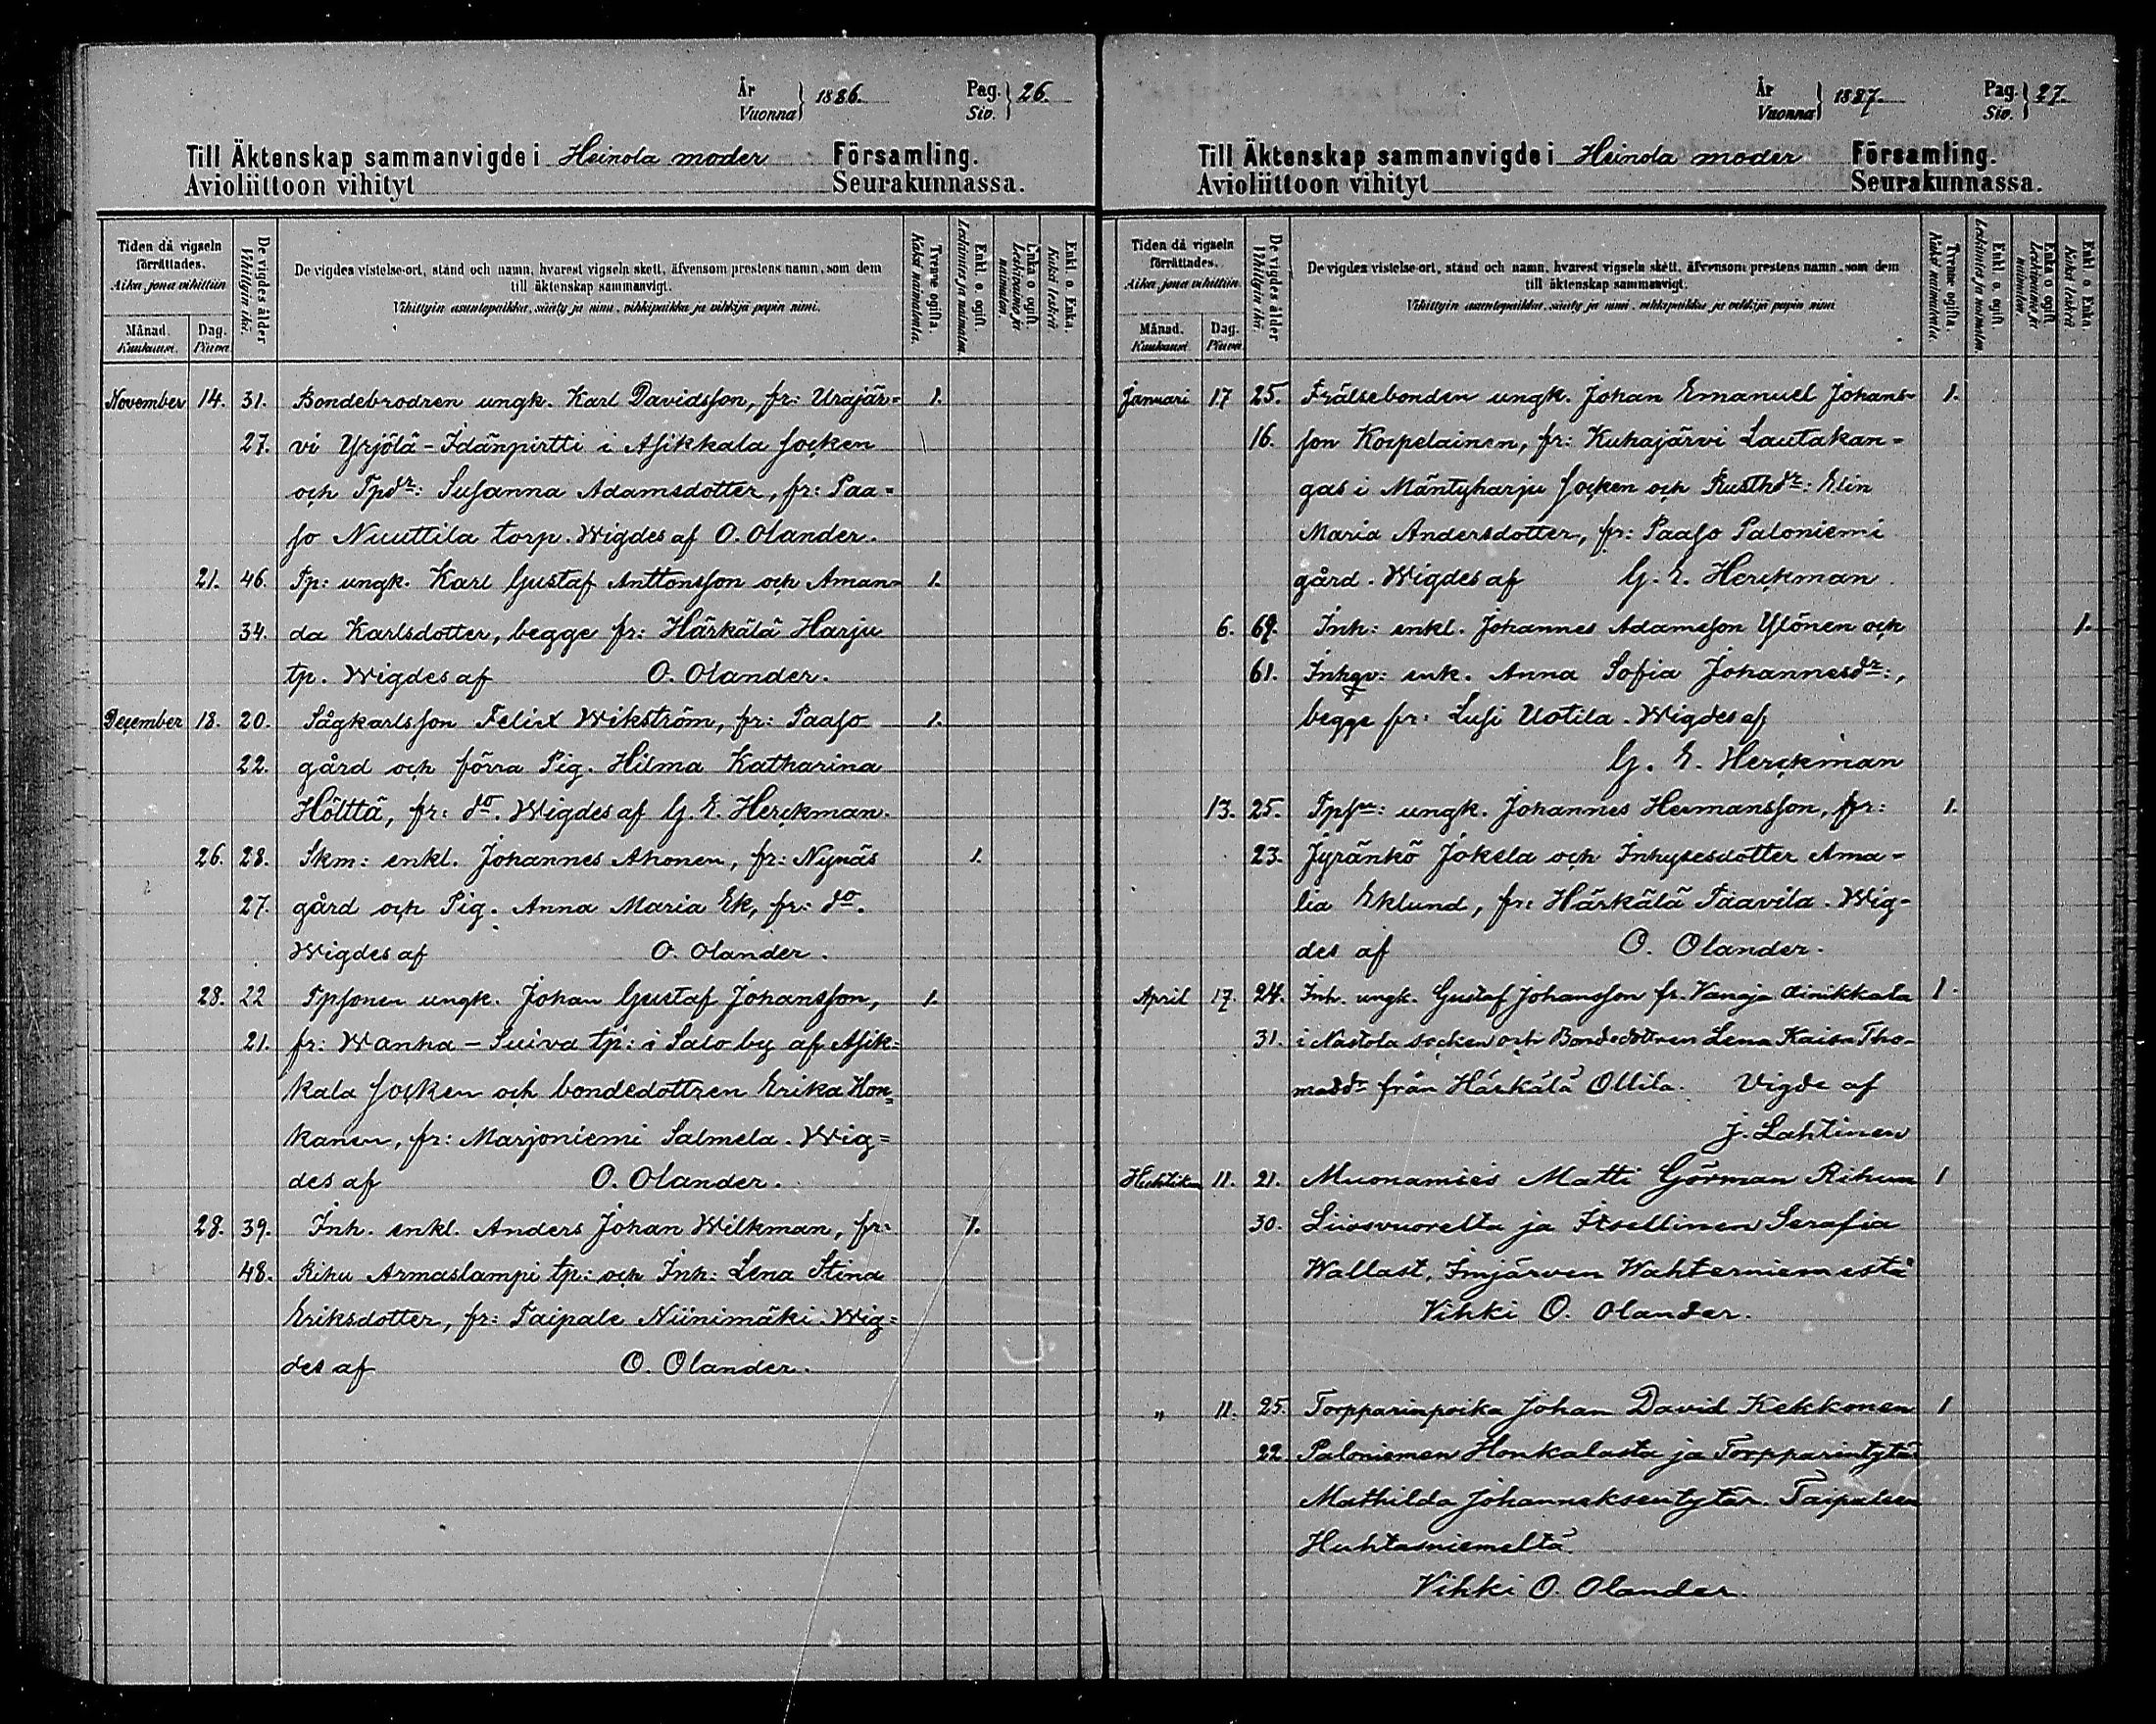 År
Vuonna } 1886.
Pag.
Siv. } 26.
Till Äktenskap sammanvigde i Heinola moder Församling.
Avioliittoon vihityt Seurakunnassa.
Tiden då vigseln förrättades.
Aika, jona vihittiin
Månad. Kuukausi.
Dag. Päivä
De vigdes ålder
Vihittyin ikä.
De vigdes vistelse-ort, stånd och namn, hvarest vigseln skett, äfvensom prestens namn, som dem
till äktenskap sammanvigt.
Vihittyin asuntopaikka, sääty ja nimi, vihkipaikka ja vihkijä papin nimi.
Tvenne ogifta.
Kaksi naimatonta.
Enkl. o. ogift.
Leskimies ja naimaton.
Enka o ogift
Leskivaimo ja naimaton
Enkl. o. Enka.
Kaksi leskeä.
November 14. 31. Bondebrodren ungk. Karl Davidsson, fr: Urajär= 1.
27. vi Yrjölä-Idänpirtti i Asikkala socken
och Tpdr: Susanna Adamsdotter, fr: Paa=
so Nuuttila torp. Wigdes af O. Olander.
21. 46. Tp: ungk. Karl Gustaf Anttonsson och Aman= 1.
34. da Karlsdotter, begge fr: Härkälä Harju
tp. Wigdes af O. Olander.
December 18. 20. Sågkarlsson Felix Wikström, fr: Paaso 1.
22. gård och förra Pig. Hilma Katharina
Hölttä, fr: do. Wigdes af G. E. Herckman.
26. 28. Skm: enkl. Johannes Ahonen, fr: Nynäs 1.
27. gård och Pig. Anna Maria Ek, fr: do.
Wigdes af O. Olander.
28. 22 Tpsonen ungk. Johan Gustaf Johansson, 1.
21. fr: Wanha-Suiva tp: i Salo by af Asik=
kala socken och bondedottren Erika Hon=
kanen, fr: Marjoniemi Salmela. Wig=
des af O. Olander.
28. 39. Inh. enkl. Anders Johan Wilkman, fr: 1.
48. Rihu Armaslampi tp: och Inh: Lena Stina
Eriksdotter, fr: Taipale Niinimäki. Wig=
des af O. Olander.
År
Vuonna } 1887.
Pag.
Siv. } 27.
Till Äktenskap sammanvigde i Heinola moder Församling.
Avioliittoon vihityt Seurakunnassa.
Tiden då vigseln förrättades.
Aika, jona vihittiin
Månad. Kuukausi
Dag. Päivä
De vigdes ålder
Vihittyin ikä.
De vigdes vistelse-ort, stånd och namn, hvarest vigseln skett, äfvensom prestens namn, som dem
till äktenskap sammanvigt.
Vihittyin asuntopaikka, sääty ja nimi, vihkipaikka ja vihkijä papin nimi
Tvenne ogifta.
Kaksi naimatonta.
Enkl. o. ogift
Leskimies ja naimaton.
Enka o. ogift
Leskivaimo ja naimaton
Enkl. o. Enka.
Kaksi leskeä.
Januari 17 25. Frälsebonden ungk. Johan Emanuel Johans- 1.
16. son Korpelainen, fr: Kuhajärvi Lautakan=
gas i Mäntyharju socken och Rusthdr: Elin
Maria Andersdotter, fr: Paaso Paloniemi
gård. Wigdes af G. E. Herckman
6. 69. Inh: enkl. Johannes Adamsson Ylönen och 1.
61. Inhqv: enk. Anna Sofia Johannesdr:,
begge fr: Lusi Uotila. Wigdes af
G. E. Herckman
13. 25. Tpsn: ungk. Johannes Hermansson, fr: 1.
23. Jyränkö Jokela och Inhysesdotter Ama=
lia Eklund, fr: Härkälä Taavila. Wig-
des af O. Olander.
April 17. 24. Inh. ungk. Gustaf Johansson fr. Vanaja Ainikkala 1.
31. i Nastola socken och Bondedottren Lena Kaisa Tho-
masdr från Härkälä Ollila. Vigde af
J. Lahtinen
Huhtikuu 11. 21. Muonamies Matti Görman Rihun 1
30. Liuosvuorelta ja Itsellinen Serafia
Wallast, Imjärven Wahterniemestä
Vihki O. Olander.
" 11. 25. Torpparinpoika Johan David Kekkonen 1
22. Paloniemen Honkalasta ja Torpparintytär
Mathilda Johanneksentytär Taipaleen
Huhtasniemeltä
Vihki O. Olander.